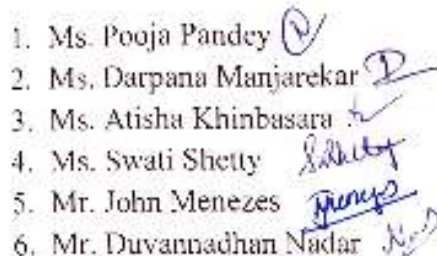 1. Ms. Pooja Pandey
2. Ms. Darpana Manjarekar
3. Ms. Atisha Khinbasara
4. Ms. Swati Shetty SShetty
5. Mr. John Menezes
6. Mr. Duvannadhan Nadar